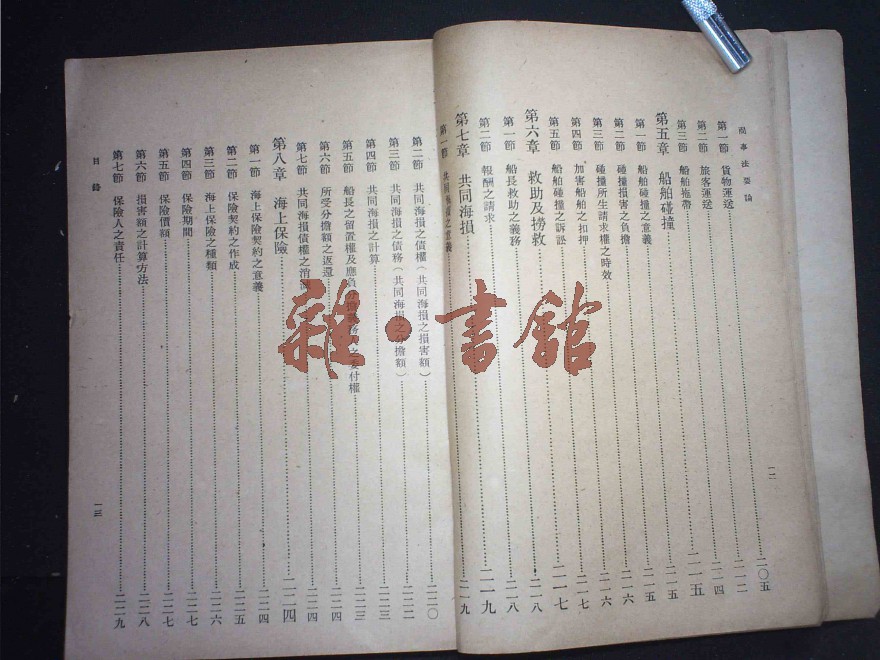 商事法要論
第一節 貨物運送……二〇五
第二節 旅客運送……二一二
第三節 船舶拖帶……二一四
第五章 船舶碰撞……二一五
第一節 船舶碰撞之意義……二一五
第二節 碰撞損害之負擔……二一五
第三節 碰撞所生請求權之時效……二一六
第四節 加害船舶之扣押……二一六
第五節 船舶碰撞之訴訟……二一七
第六章 救助及撈救……二一七
第一節 船長救助之義務……二一八
第二節 報酬之請求……二一八
第七章 共同海損……二一九
第一節 共同海損之意義……二一九
一二
第二節 共同海損之債權(共同海損之損害額)……二二〇
第三節 共同海損之債務(共同海損之分擔額)……二二二
第四節 共同海損之計算……二二三
第五節 船長之留置權及應負分擔之付權……二二三
第六節 所受分擔額之返還……二二四
第七節 共同海損債權之消滅……二二四
第八章 海上保險……二二四
第一節 海上保險契約之意義……二二四
第二節 保險契約之作成……二二五
第三節 海上保險之種類……二二六
第四節 保險期間……二二七
第五節 保險價額……二二七
第六節 損害額之計算方法……二二八
第七節 保險人之責任……二二九
目錄
一三
雜·書館